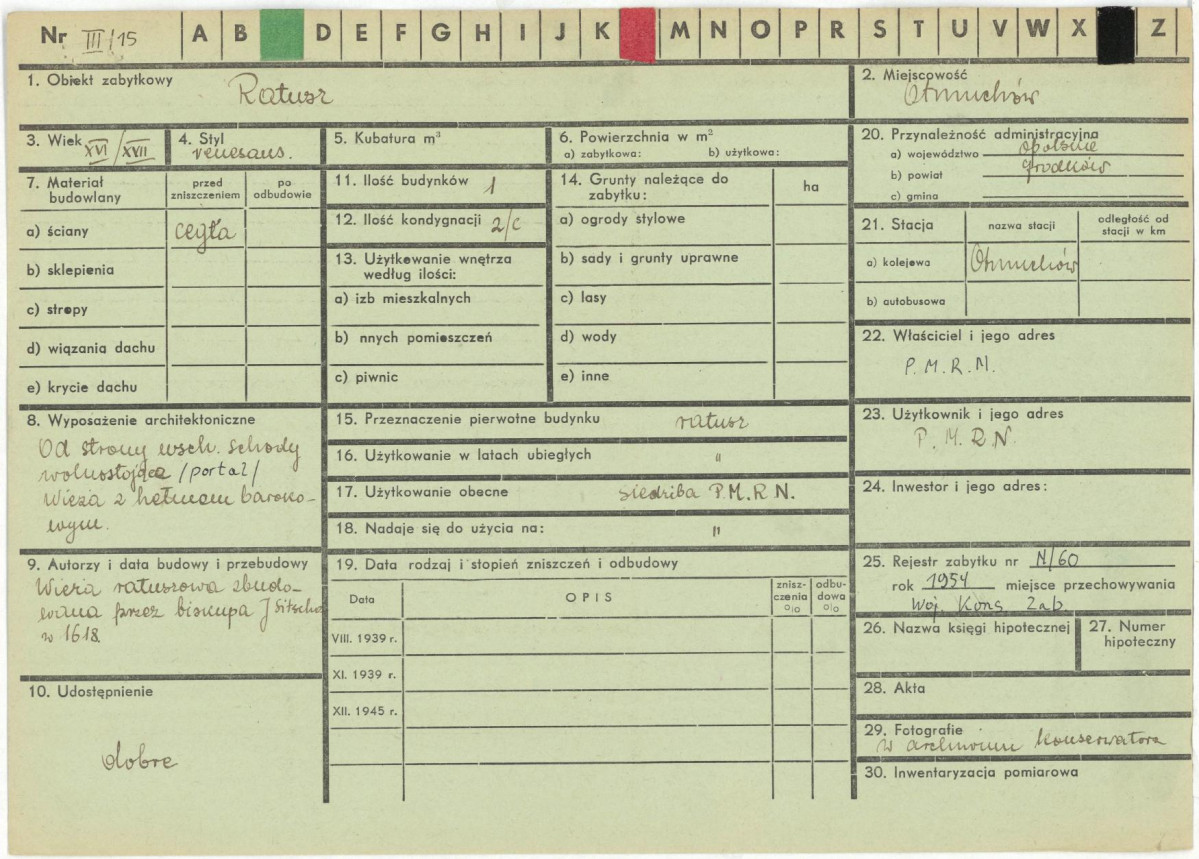 Nr III/15 A B D E F G H I J K M N O P R S T U V W X Z
1. Obiekt zabytkowy
Ratusz
2. Miejscowość
Otmuchów
3. Wiek XVI/XVII
4. Styl
renesans.
5. Kubatura m³
6. Powierzchnia w m²
a) zabytkowa: b) użytkowa:
20. Przynależność administracyjna
a) województwo opolskie
b) powiat Grodków
c) gmina
7. Materiał budowlany
przed zniszczeniem
po odbudowie
a) ściany cegła
b) sklepienia
c) stropy
d) wiązania dachu
e) krycie dachu
11. Ilość budynków 1
12. Ilość kondygnacji 2/c
13. Użytkowanie wnętrza
według ilości:
a) izb mieszkalnych
b) nnych pomieszczeń
c) piwnic
14. Grunty należące do
zabytku:
ha
a) ogrody stylowe
b) sady i grunty uprawne
c) lasy
d) wody
e) inne
21. Stacja
nazwa stacji
odległość od
stacji w km
a) kolejowa Otmuchów
b) autobusowa
22. Właściciel i jego adres
P. M. R. N.
8. Wyposażenie architektoniczne
Od strony wsch. schody
wolnostojące /portal/
Wieża z hełmem baroko-
wym.
15. Przeznaczenie pierwotne budynku ratusz
16. Użytkowanie w latach ubiegłych "
17. Użytkowanie obecne siedziba P.M.R.N.
18. Nadaje się do użycia na: "
23. Użytkownik i jego adres
P. M. R. N.
24. Inwestor i jego adres:
9. Autorzy i data budowy i przebudowy
Wieża ratuszowa zbudo-
wana przez biskupa J Sitscha
w 1618
19. Data rodzaj i stopień zniszczeń i odbudowy
Data
OPIS
znisz-
czenia
%
odbu-
dowa
%
VIII. 1939 r.
XI. 1939 r.
XII. 1945 r.
25. Rejestr zabytku nr N/60
rok 1954 miejsce przechowywania
Woj. Kons. Zab.
26. Nazwa księgi hipotecznej
27. Numer
hipoteczny
10. Udostępnienie
dobre
28. Akta
29. Fotografie
w archiwum konserwatora
30. Inwentaryzacja pomiarowa